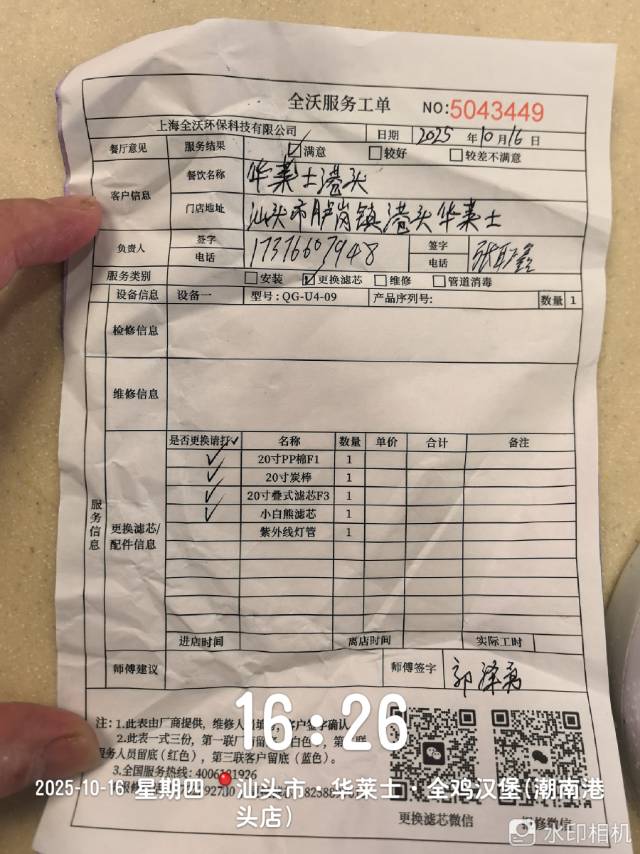 全沃服务工单 NO:5043449
上海全沃环保科技有限公司 日期 2025 年 10 月 16 日
餐厅意见 服务结果 ☑满意 □较好 □较差不满意
客户信息 餐饮名称 华莱士港头
门店地址 汕头市胪岗镇港头华莱士
负责人 签字 电话 17376607948 签字 电话
服务类别 □安装 ☑更换滤芯 □维修 □管道消毒
设备信息 设备一 型号:QG-U4-09 产品序列号: 数量 1
检修信息
维修信息
服务信息
更换滤芯/配件信息
是否更换请打✓ 名称 数量 单价 合计 备注
✓ 20寸PP棉F1 1
✓ 20寸炭棒 1
✓ 20寸叠式滤芯F3 1
✓ 小白熊滤芯 1
紫外线灯管 1
进店时间 离店时间 实际工时
师傅建议 师傅签字
注: 1.此表由厂商提供, 维修人 客户签字确认
2.此表一式三份, 第一联厂 白色
服务人员留底(红色), 第三联客户留底(蓝色)。
3.全国服务热线: 4006 1926
更换滤芯微信 报修微信
16:26
2025-10-16 星期四 汕头市·华莱士·全鸡汉堡(潮南港
头店)
水印相机